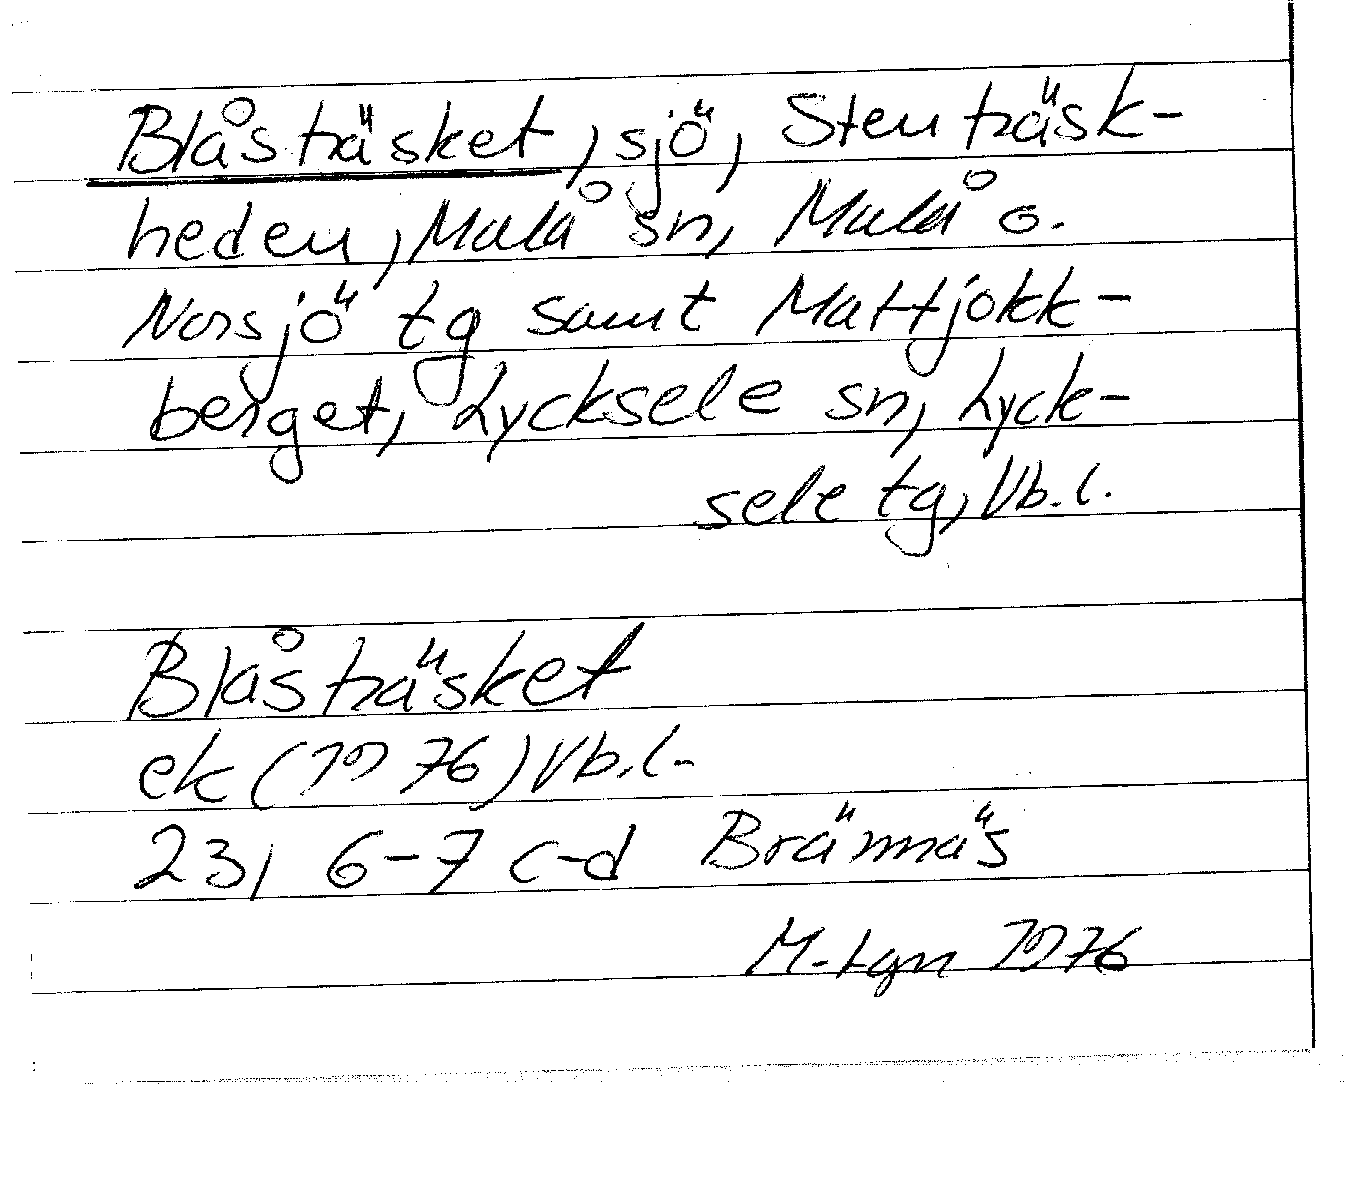 Blåsträsket, sjö, Stenträsk-
heden, Malå sn, Malå o.
Norsjö tg samt Mattjokk-
berget, Lycksele sn, Lyck-
sele tg, Vb.l.
Blåsträsket
ek (1976) Vb.l.
23I 6-7 c-d Brännäs
M-tgn 1976